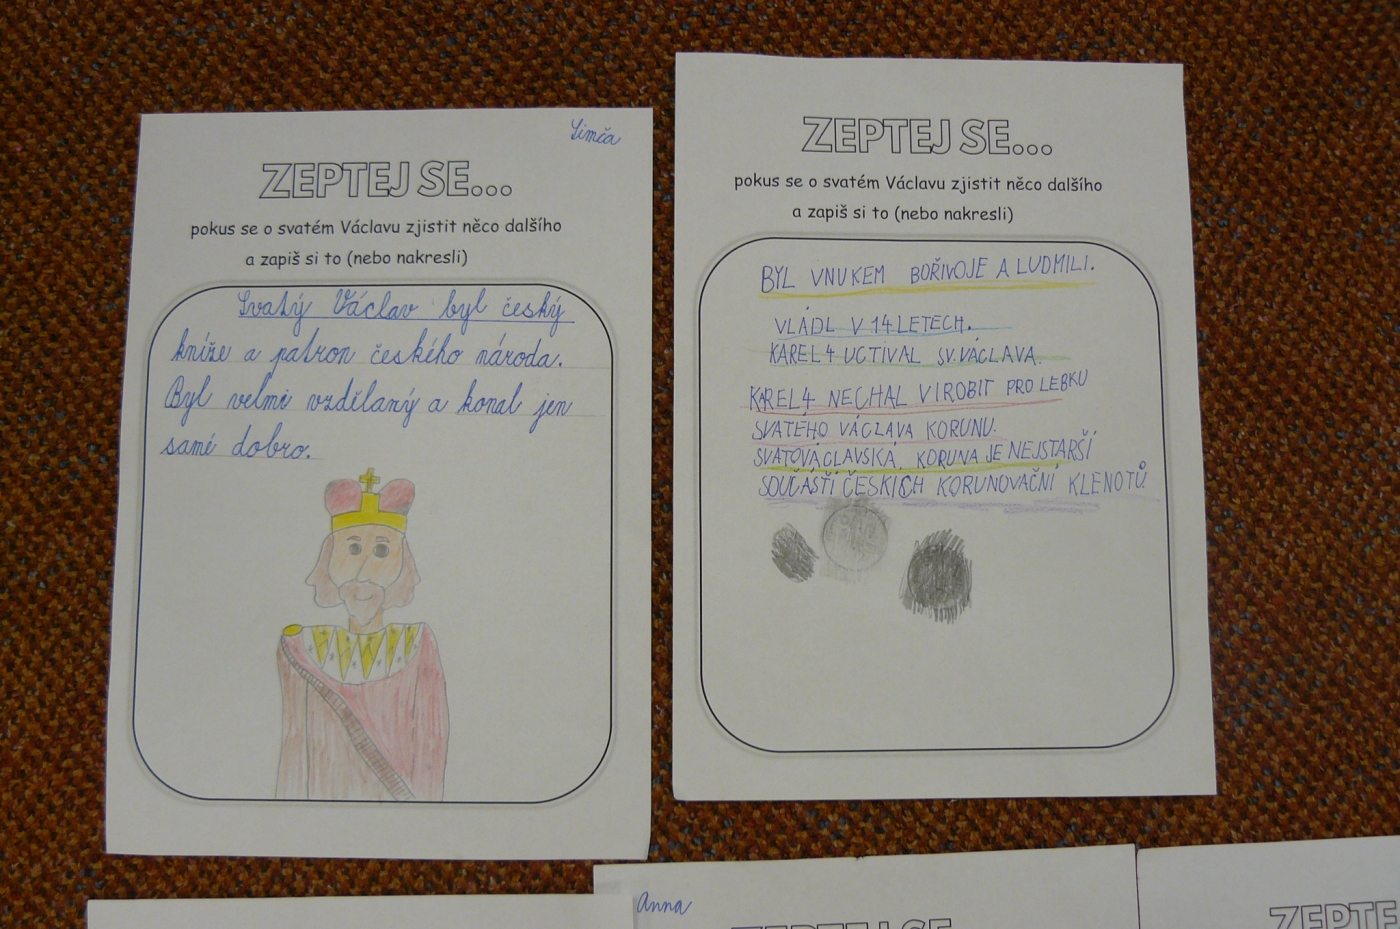 Simča
ZEPTEJ SE...
pokus se o svatém Václavu zjistit něco dalšího
a zapiš si to (nebo nakresli)
Svatý Václav byl český
kníže a patron českého národa.
Byl velmi vzdělaný a konal jen
samé dobro.
ZEPTEJ SE...
pokus se o svatém Václavu zjistit něco dalšího
a zapiš si to (nebo nakresli)
BYL VNUKEM BOŘIVOJE A LUDMILI.
VLÁDL V 14 LETECH.
KAREL 4 UCTIVAL SV. VÁCLAVA.
KAREL 4 NECHAL VIROBIT PRO LEBKU
SVATÉHO VÁCLAVA KORUNU.
SVATOVÁCLAVSKÁ KORUNA JE NEJSTARŠÍ
SOUČÁSTÍ ČESKICH KORUNOVAČNÍ KLENOTŮ
Anna
ZEPTEJ SE
ZEPTE